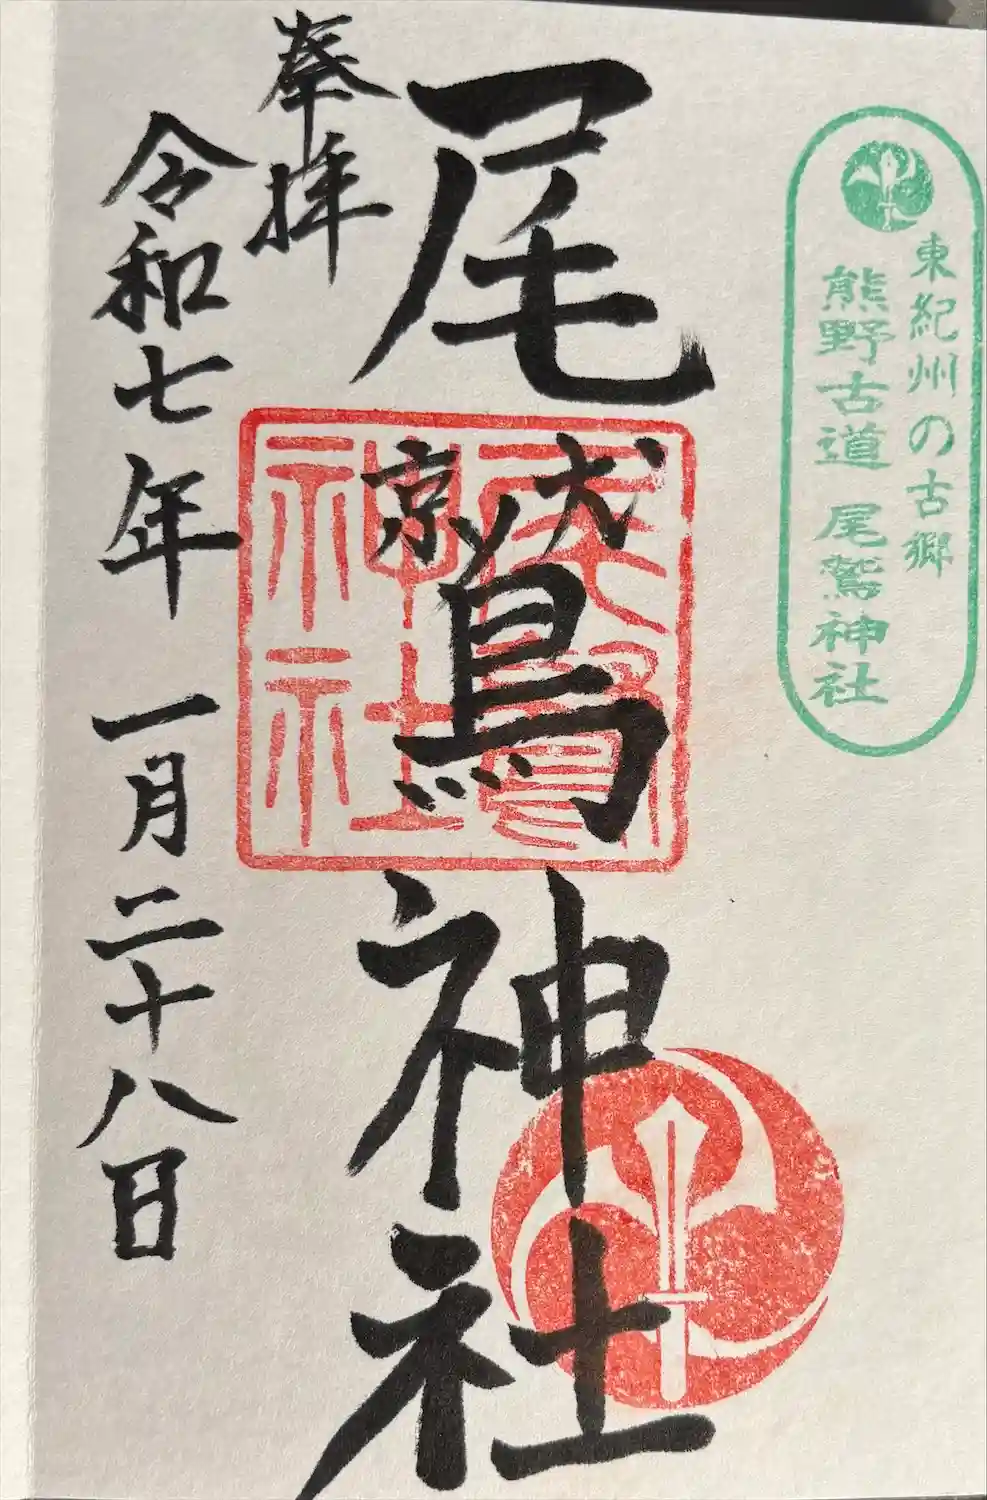 東紀州の古郷
熊野古道 尾鷲神社
尾鷲神社
奉拝
令和七年 一月二十八日
尾鷲
神社